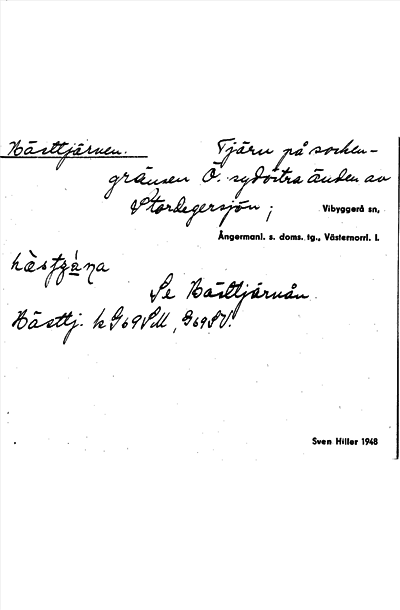 Hästtjärnen. Tjärn på socken-
gränsen Ö. sydöstra änden av
Stordegersjön; Vibyggerå sn,
Ångermanl. s. doms. tg., Västernorrl. l.
Se Hästtjärnån
Hästtj. k G69SU, G69SV.
Sven Hiller 1948